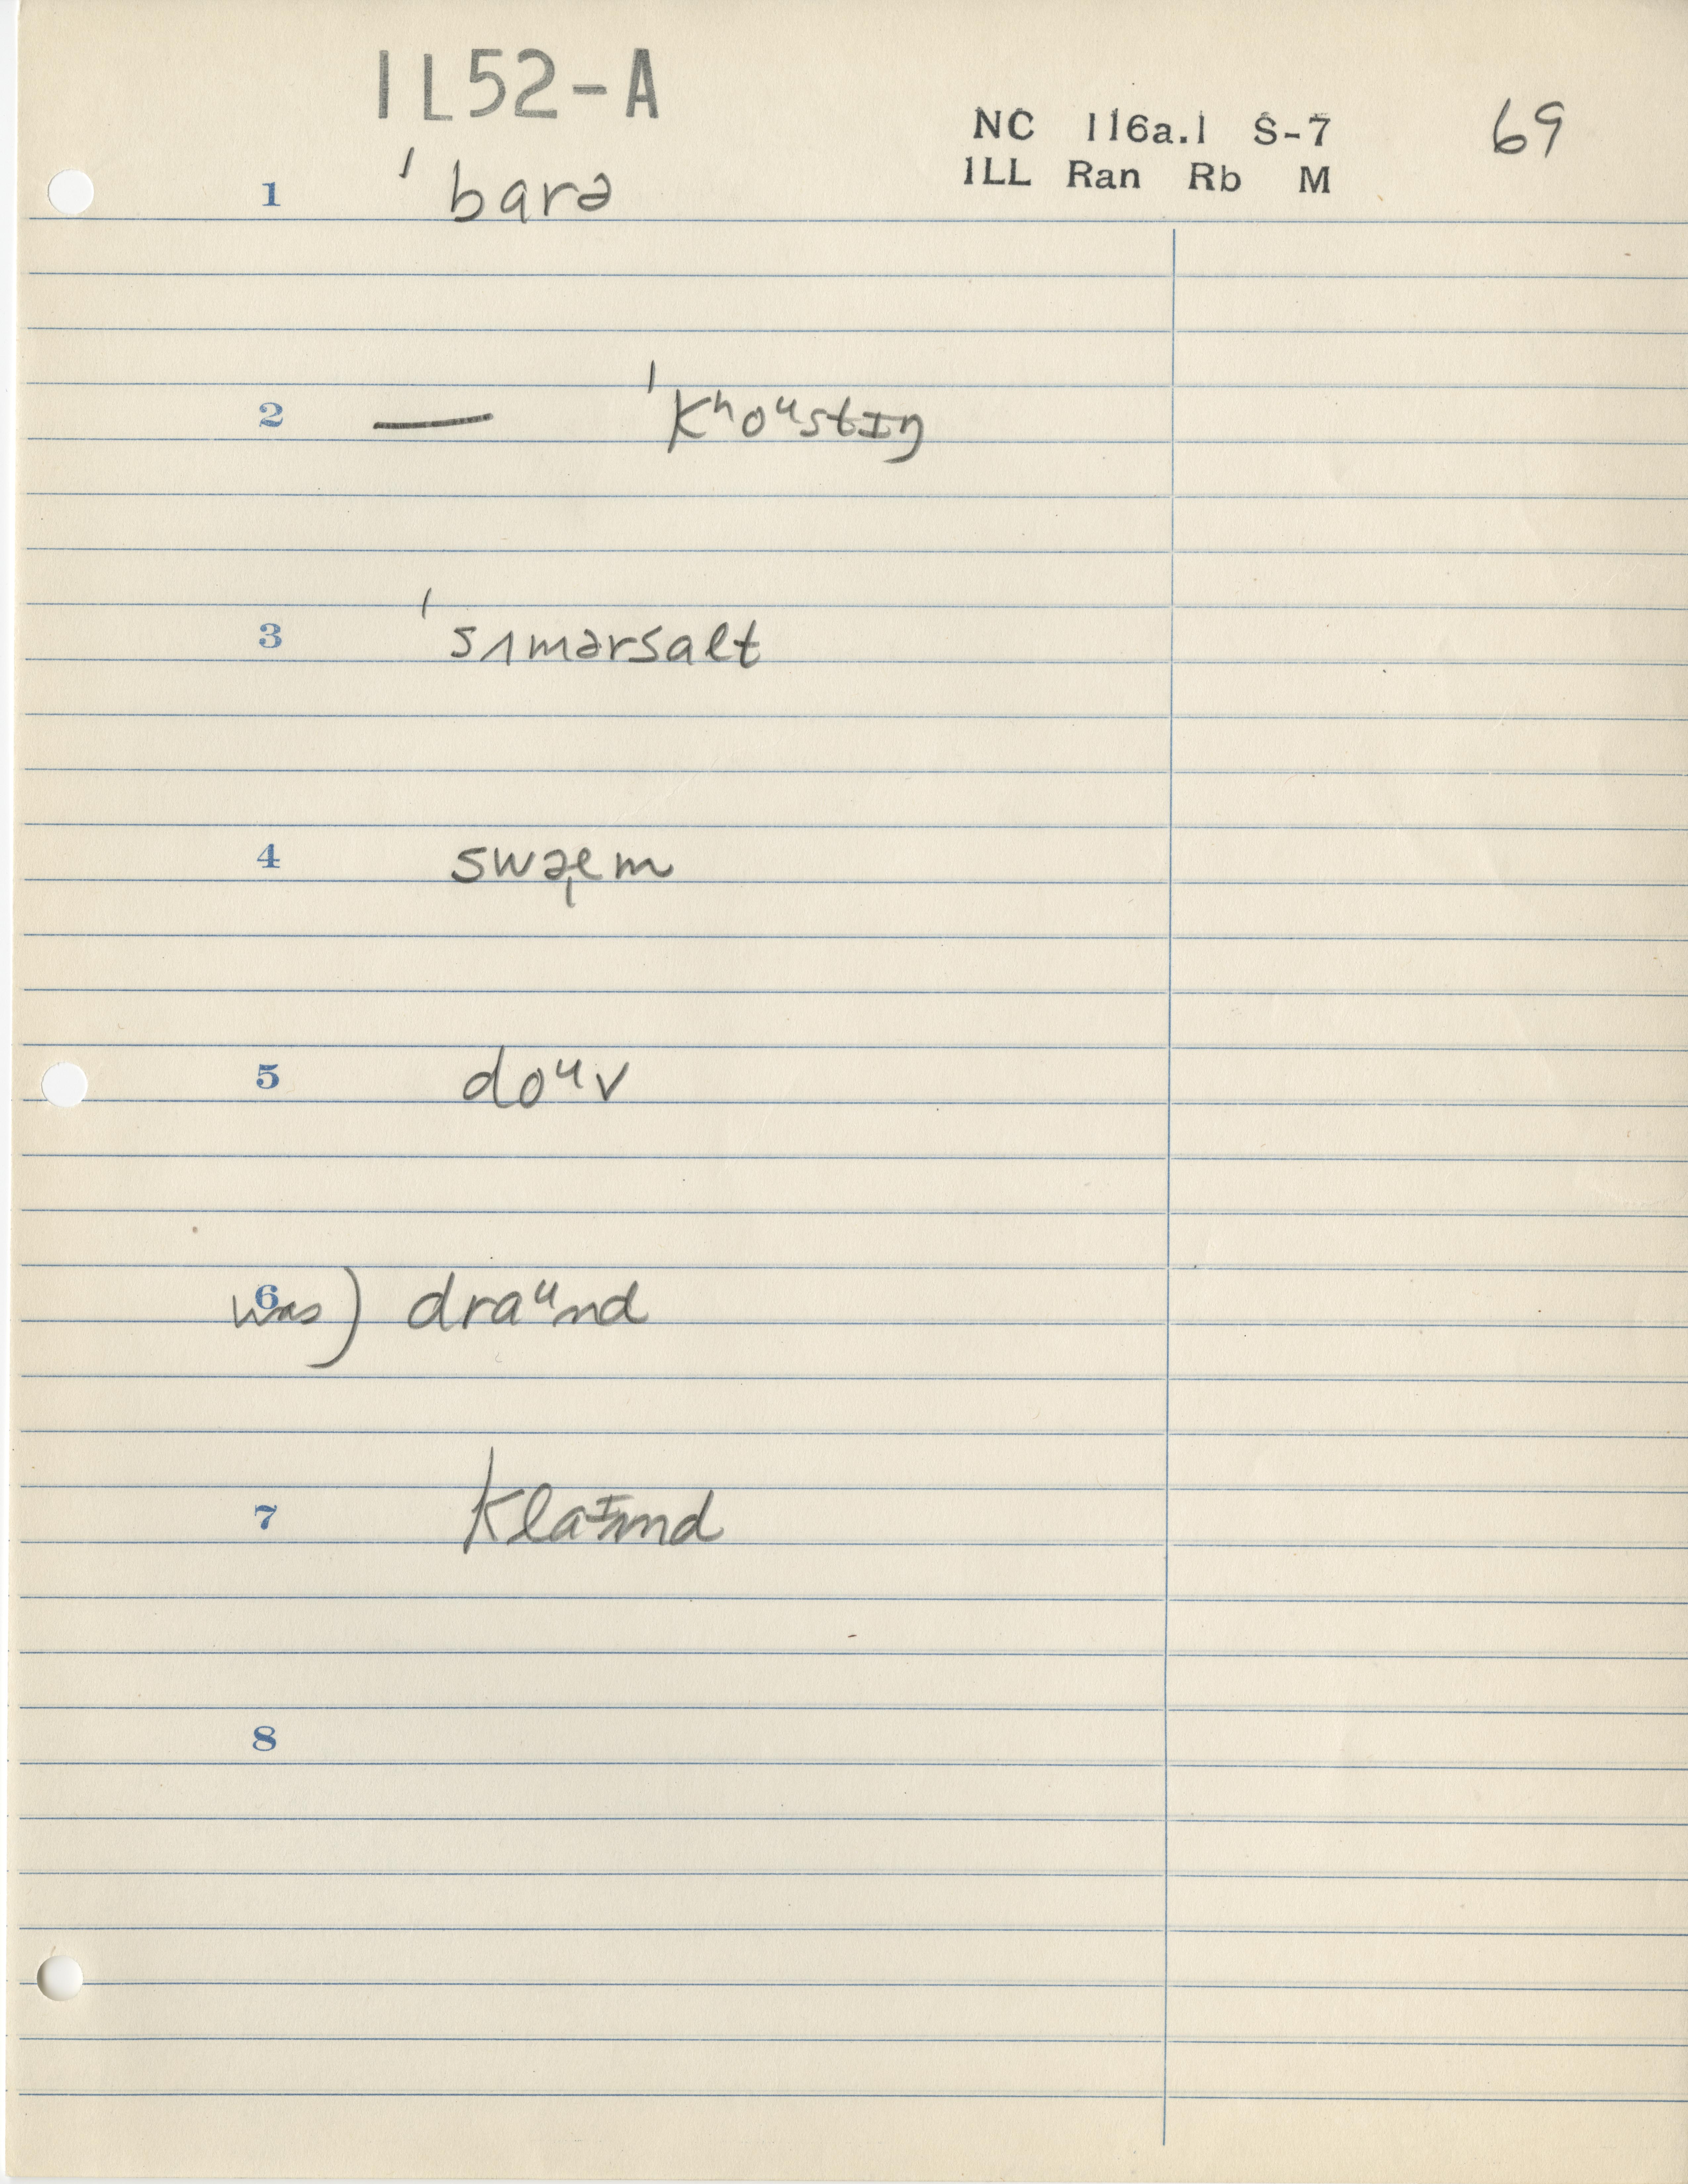 IL52-A
NC 116a.1 S-7 69
ILL Ran Rb M
1 ˈbarə
2 — ˈkʰoᵘstɪŋ
3 ˈsʌmərsalt
4 swəɛm
5 doᵘv
6 was) draᵘnd
7 klaɪmd
8